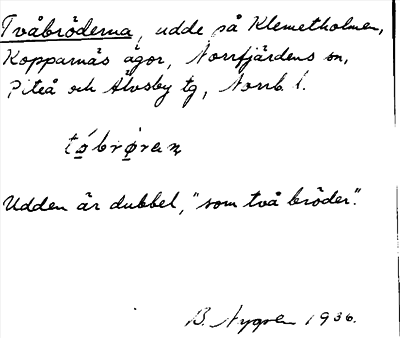 Tvåbröderna, udde på Klemetholmen,
Kopparnäs ägor, Norrfjärdens sn,
Piteå och Älvsby tg, Norrb. l.
tǻbrǿran
Udden är dubbel, "som två bröder".
B. Nygren 1936.